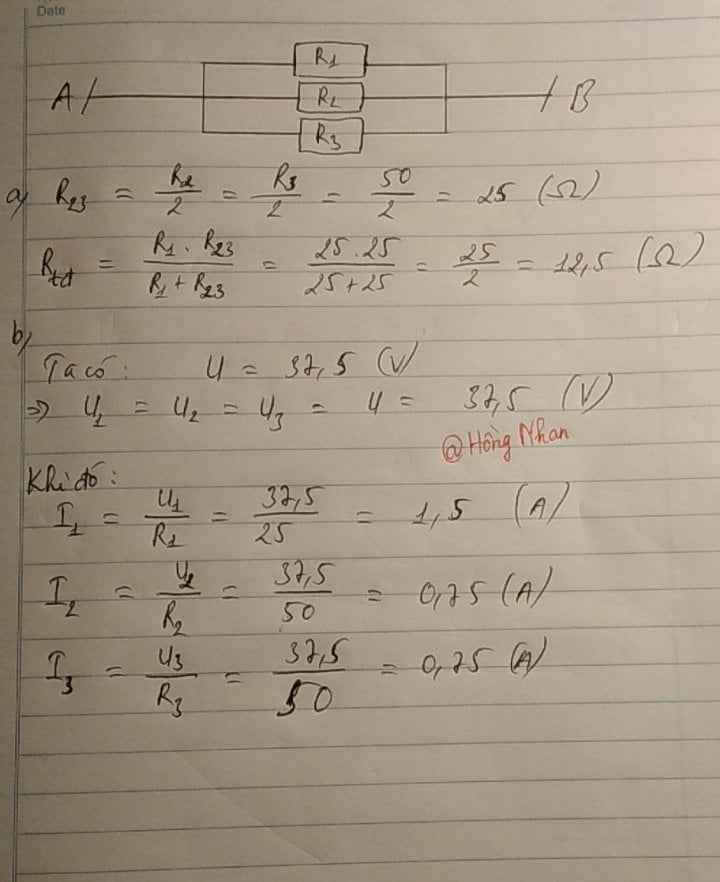 Date
R1
A R2 B
R3
a) R23 = R2/2 = R3/2 = 50/2 = 25 (Ω)
Rtđ = R1 . R23 / R1 + R23 = 25 . 25 / 25 + 25 = 25/2 = 12,5 (Ω)
b)
Ta có : U = 37,5 (V)
=> U1 = U2 = U3 = U = 37,5 (V)
@Hồng Nhan
Khi đó :
I1 = U1/R1 = 37,5/25 = 1,5 (A)
I2 = U2/R2 = 37,5/50 = 0,75 (A)
I3 = U3/R3 = 37,5/50 = 0,75 (A)